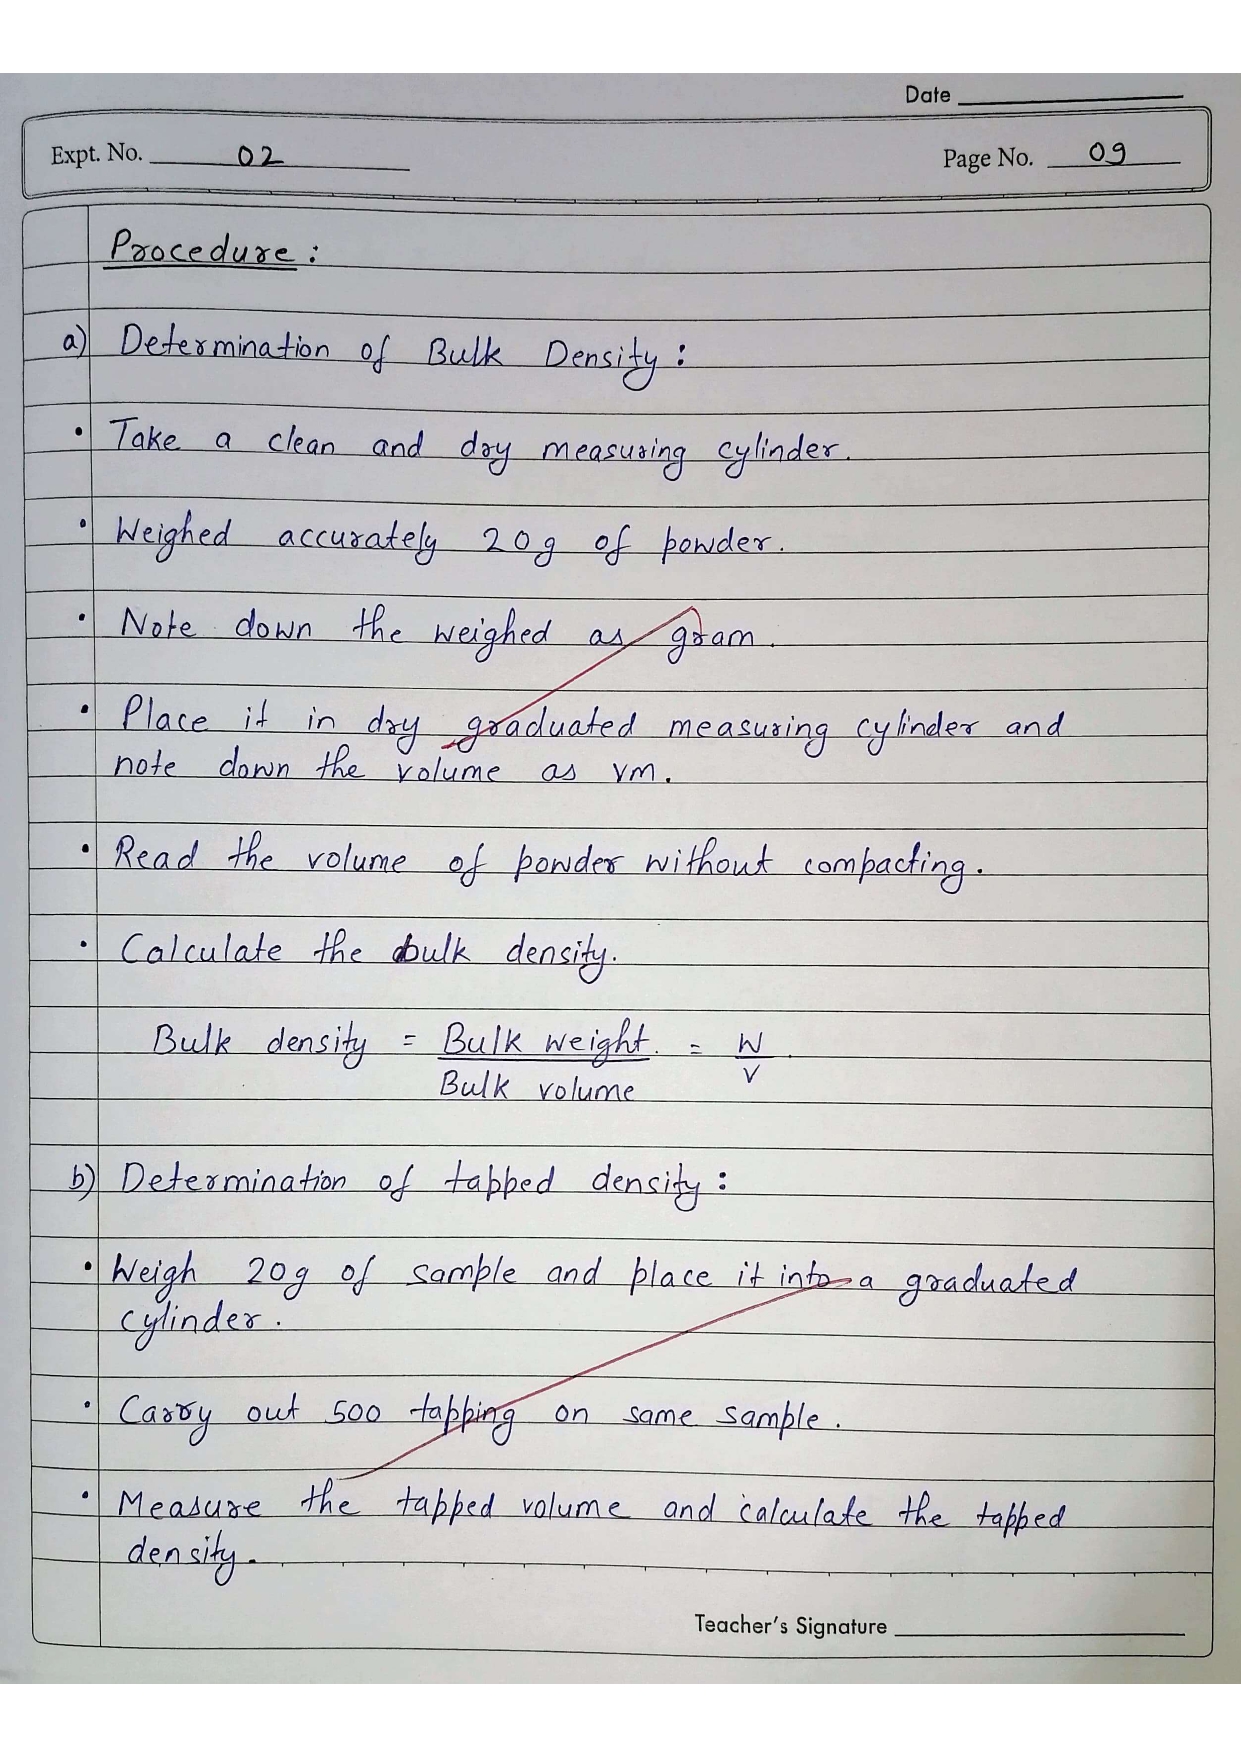 Date
Expt. No. 02 Page No. 09
Procedure :
a) Determination of Bulk Density :
• Take a clean and dry measuring cylinder.
• Weighed accurately 20g of powder.
• Note down the weighed as gram.
• Place it in dry graduated measuring cylinder and
note down the volume as vm.
• Read the volume of powder without compacting.
• Calculate the bulk density.
Bulk density = Bulk weight = W
Bulk volume V
b) Determination of tapped density :
• Weigh 20g of sample and place it into a graduated
cylinder.
• Carry out 500 tapping on same sample.
• Measure the tapped volume and calculate the tapped
density.
Teacher's Signature